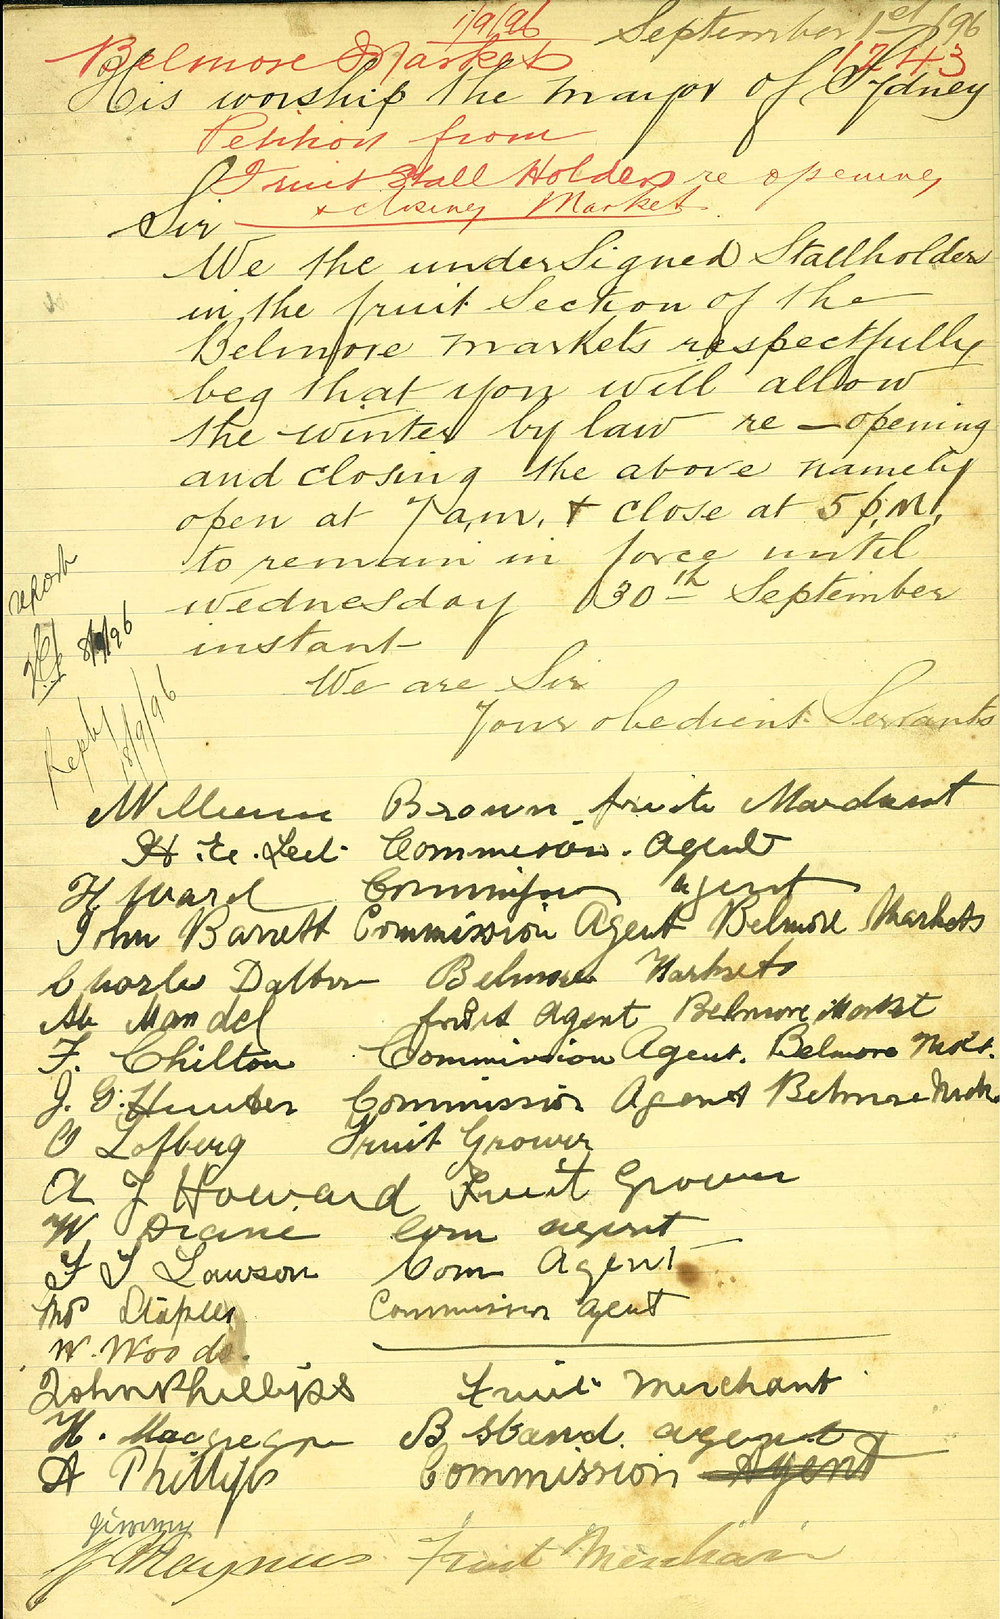 1/9/96
September 1st /96
Belmore Markets
1243
His worship the mayor of Sydney
Petition from
Fruit Stall Holders re opening
& closing Market
Sir
We the underSigned Stallholders
in the fruit Section of the
Belmore markets respectfully
beg that you will allow
the winter by law re - opening
and closing the above namely
open at 7 a,m, & close at 5 p,M,
to remain in force until
wednesday 30th September
instant
We are Sir
Your obedient Servants
report
8/9/96
Reply
18/9/96
William Brown fruite Marchant
H. E. Commesion. Agent
H Ward Commission agent
John Barrett Commission Agent Belmore Markets
Charles Dalton Belmore Markets
Mandel fruit Agent Belmore Market
F. Chilton Commission Agent. Belmore Mkts.
J. G. Hunter Commission Agent Belmore
O Lofberg Fruit Grower
A J Howard Fruit Grower
W Com agent
F J Lawson Com Agent
Thos Staples Commission agent
W. Woods.
John Phillips Fruit merchant
H. Macgregor B Stand. agent
A Phillips Commission Agent
jimmy
Fruit Merchan